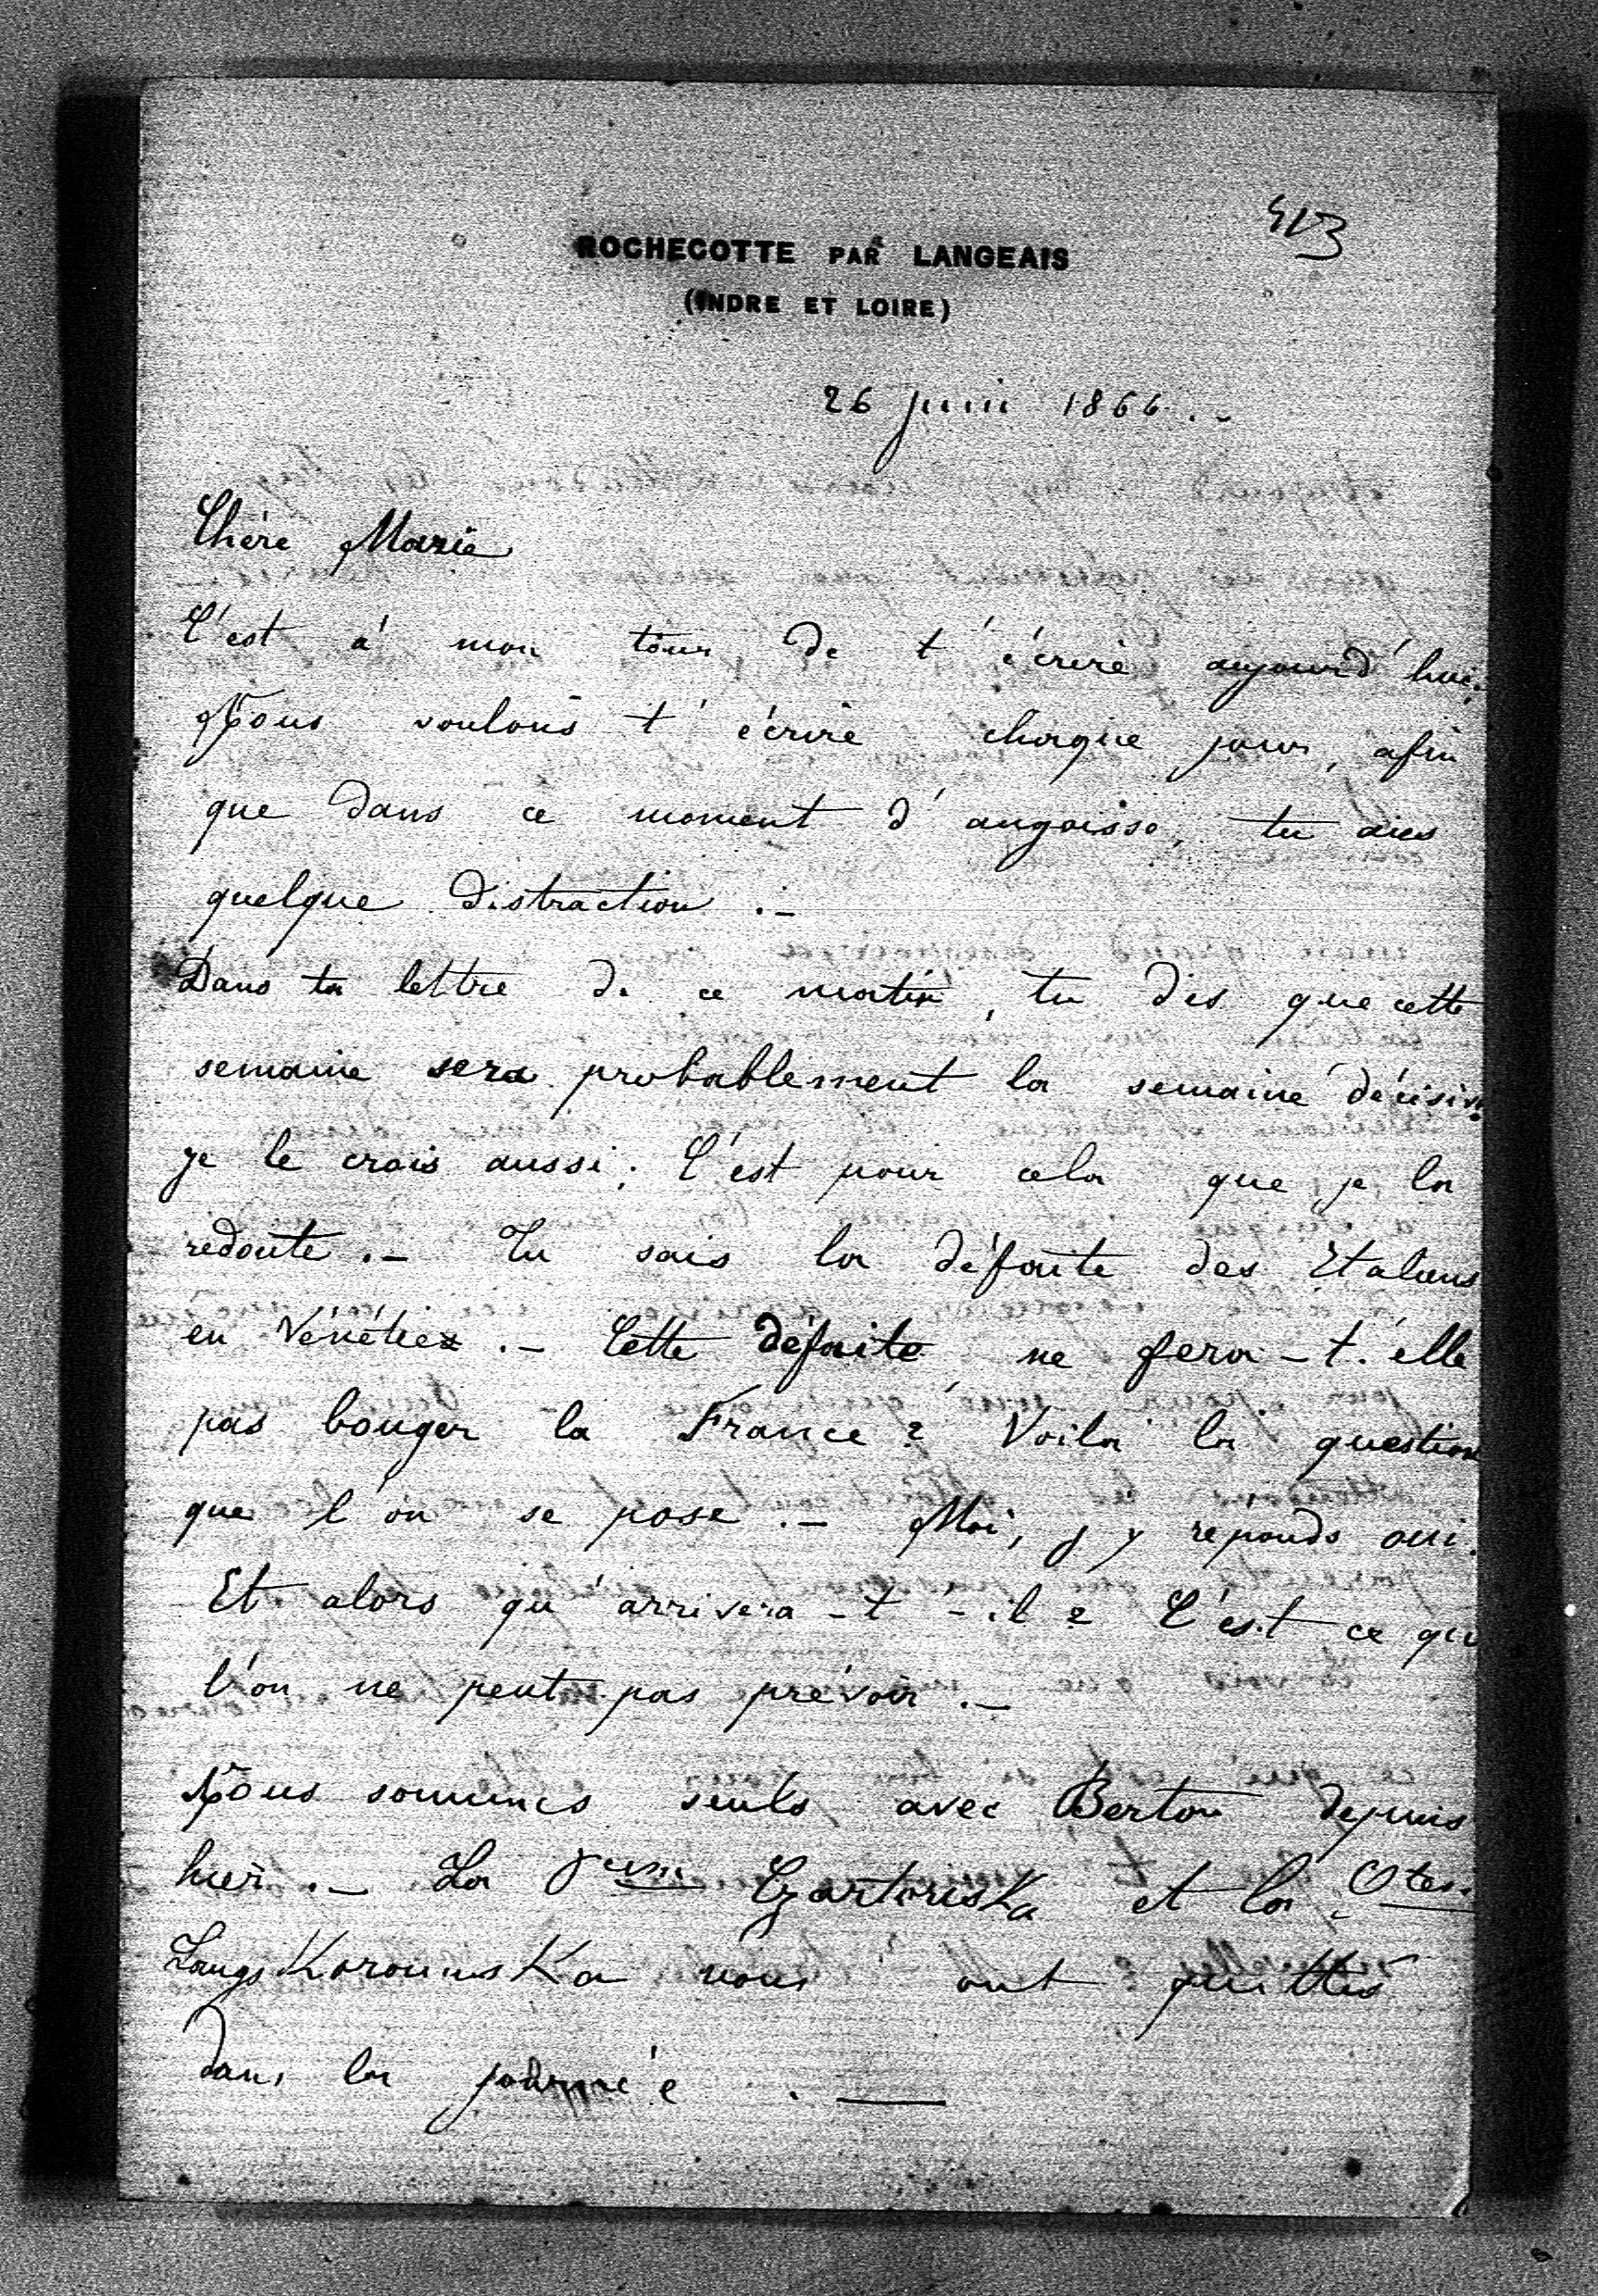 413
ROCHECOTTE PAR LANGEAIS
(INDRE ET LOIRE)
26 juin 1866.-
Chère Marie
C'est à mon tour de t'écrire aujourd'hui.
Nous voulons t'écrire chaque jour, afin
que dans ce moment d'angoisse, tu aies
quelque distraction.-
Dans ta lettre de ce matin, tu dis que cette
semaine sera probablement la semaine décisive.
je le crois aussi; C'est pour cela que je la
redoute.- Tu sais la défaite des Italiens
en Vénétie.- Cette défaite ne fera-t'elle
pas bouger la France? Voilà la question
que l'on se pose.- Moi, j'y réponds oui.
Et alors qu'arrivera-t-il? C'est ce que
l'on ne peut pas prévoir.-
Nous sommes seuls avec Berton depuis
hier.- La Pcesse Czartoriska et la Ctesse
LangsKorounsKa nous ont quittés
dans la journée.—